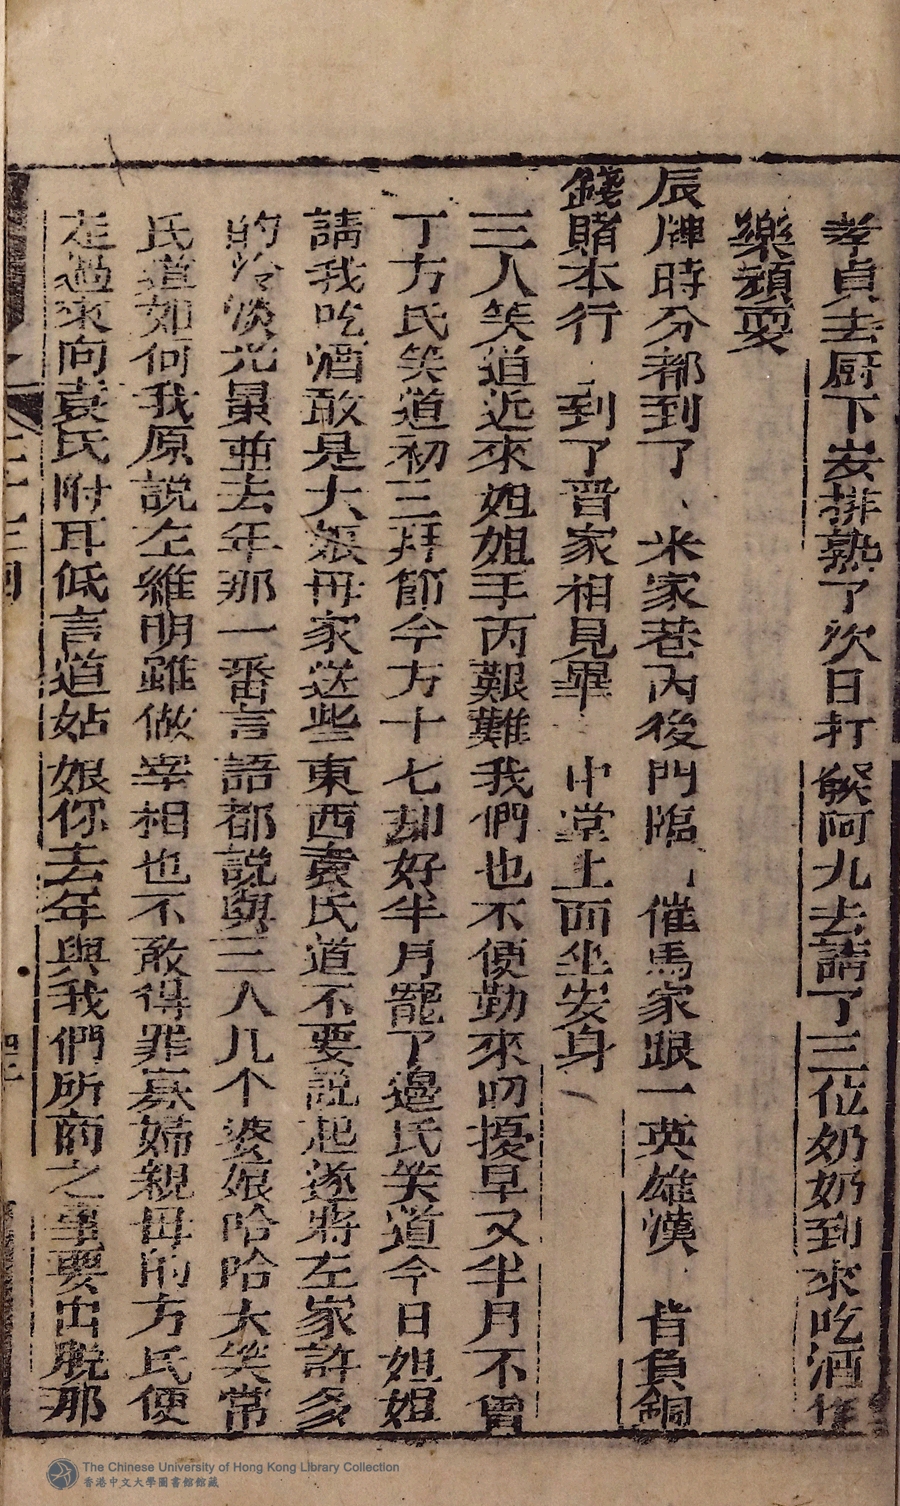 孝貞去厨下安排熟了次日打𠋫阿九去請了三位奶奶到來吃酒作
樂頑耍
辰牌時分都到了、米家巷內後門臨、催馬家跟一英雄漢、肯負銅
錢賭本行、到了晋家相見畢、中堂上面坐安身、
三人笑道近來姐姐手丙艱難我們也不便勤來叨擾早又半月不曾
了方氏笑道初三拜節今方十七却好半月罷了邊氏笑道今日姐姐
請我吃酒敢是大娘毋家送些東西袁氏道不要說起遂將左家許多
的冷淡光景並去年那一番言語都說與三人几个婆娘哈哈大笑常
氏道如何我原說左維明雖做宰相也不敢得罪寡婦親毋的方氏便
走過來向袁氏附耳低言道姑娘你去年與我們所商之事要出脫那
The Chinese University of Hong Kong Library Collection
香港中文大學圖書館館藏